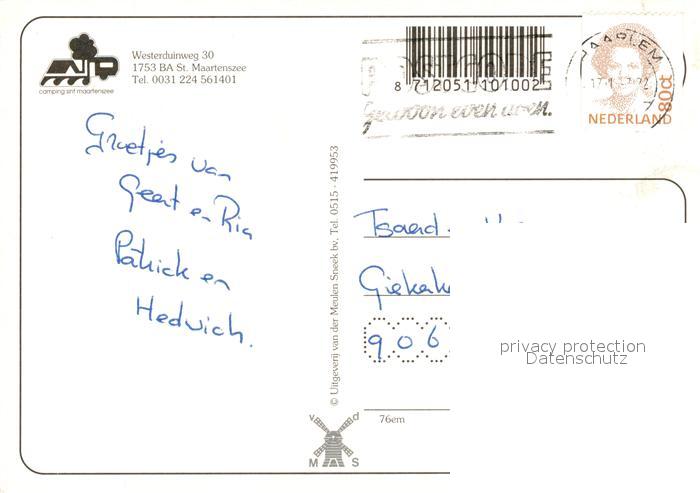 camping sint maartenszee
Westerduinweg 30
1753 BA St. Maartenszee
Tel. 0031 224 561401
8 712051 101002
gewoon even doen.
HAARLEM
NEDERLAND
80ct
Groetjes van
Geert en Ria
Patrick en
Hedwich.
© Uitgeverij van der Meulen Sneek bv. Tel. 0515 - 419953
Tsaerd.
906
v d
M S
76em
privacy protection
Datenschutz